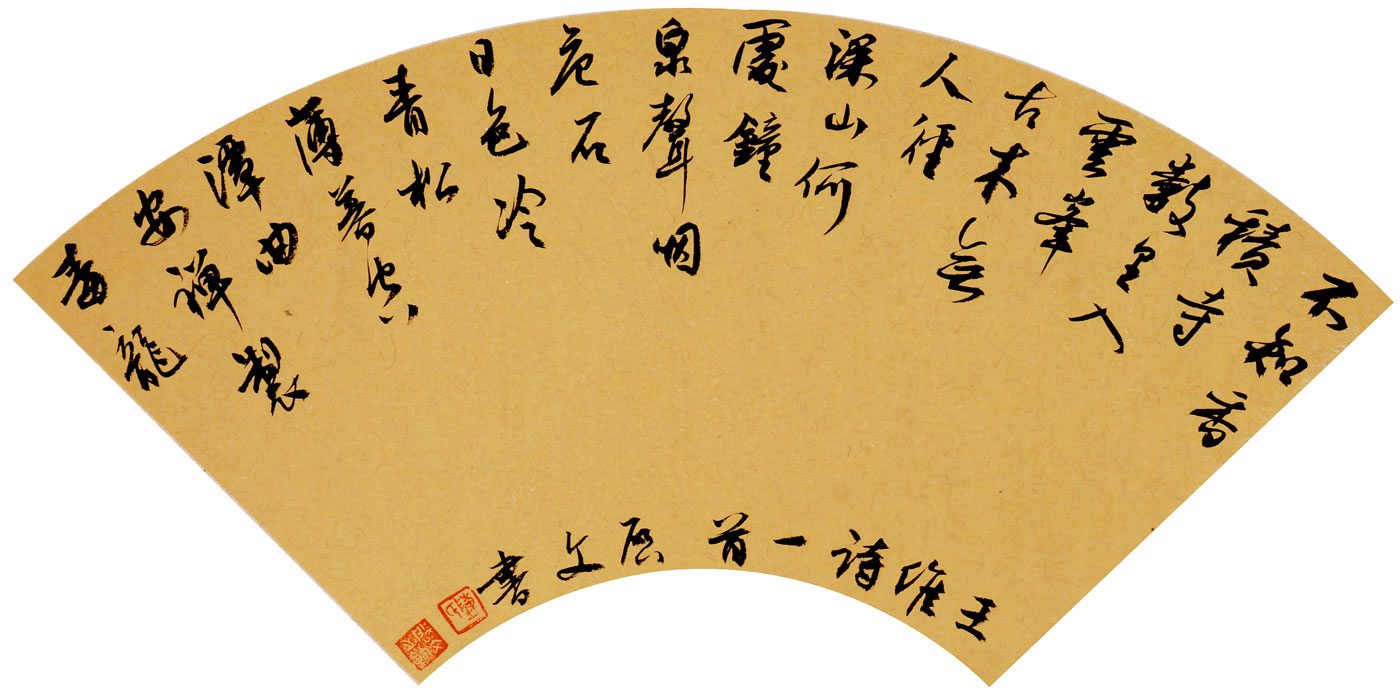 不知香
積寺
數里入
雲峯
古木無
人徑
深山何
處鐘
泉聲咽
危石
日色冷
青松
薄暮空
潭曲
安禪製
毒龍
王維詩一首 启文書